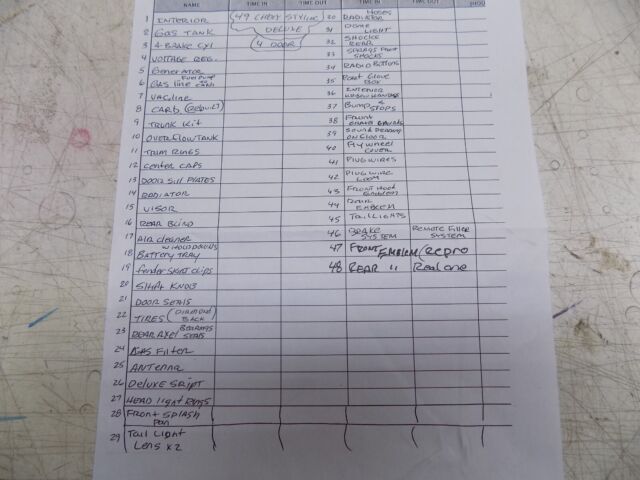 NAME TIME IN TIME OUT TIME IN TIME OUT
1 INTERIOR
2 GAS TANK
3 4 BRAKE CYl
4 VOLTAGE REG.
5 Generator
6 GAS line FUEL PUMP TO CARB
7 VAC line
8 CARB (Rebuilt)
9 TRUNK Kit
10 OVER FlowTANK
11 TRIM RINGS
12 Center CAPS
13 DOOR Sill PlATES
14 RADIATOR
15 VISOR
16 REAR Blind
17 AIR cleaner
18 BATTERY TRAY W HOLD DOWNS
19 fender skirt clips
20 SHift KNOB
21 DOOR SEALS
22 TIRES (DIAMOND BACK)
23 REAR AXel BEARINGS SEALS
24 GAS FILTER
25 ANTENNA
26 DELUXE SRIPT
27 HEAD light RINGS
28 FRONT SPLASH PAN
29 TAIL Light Lens x 2
49 CHEVY STYLINE
DELUXE
4 DOOR
30 RADIATOR HOSES
31 DOME LIGHT
32 SHOCKS REAR
33 SHOCKS
34 RADIO BUTTONS
35 GLOVE BOX
36 INTERIOR WINDOW HANDLES
37 BUMP STOPS
38 FRONT
39 SOUND DEADENER ON FLOOR
40 Fly wheel COVER
41 PLUG WIRES
42 PLUG WIRE LOOM
43 FRONT HOOD EMBLEM
44 EMBLEM
45 TAIL LIGHTS
46 BRAKE SYSTEM REMOTE FILLER SYSTEM
47 FRONT EMBLEM (Repro
48 REAR " Real one